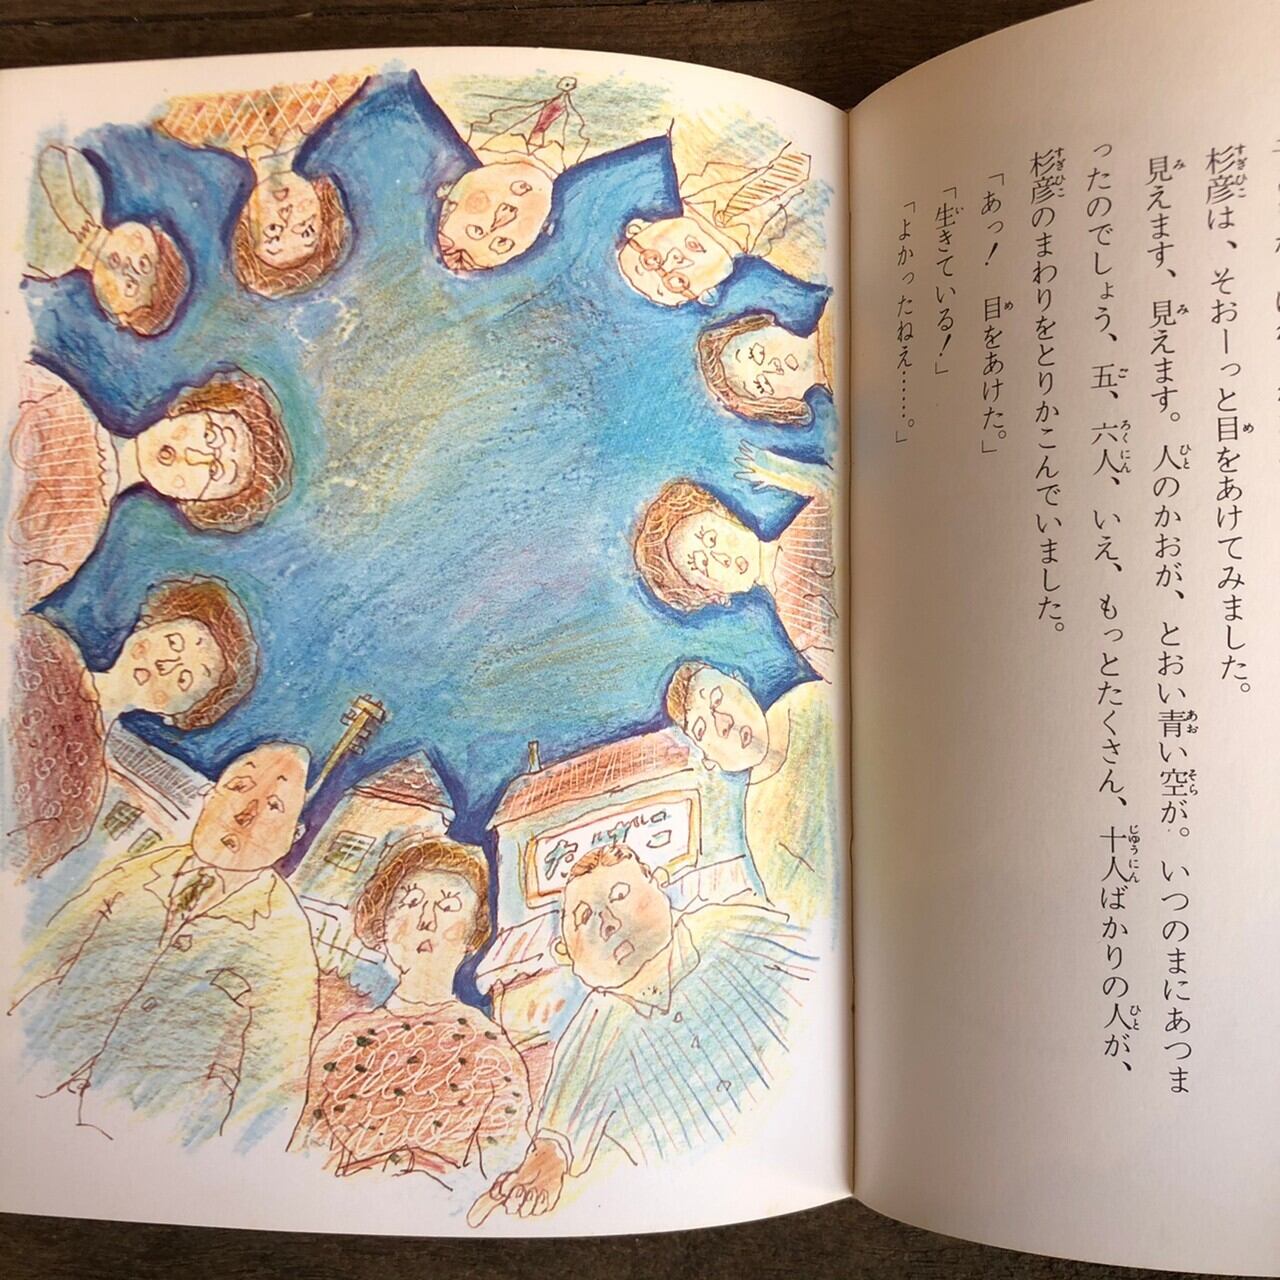 杉彦は、そおーっと目をあけてみました。
見えます、見えます。人のかおが、とおい青い空が。いつのまにあつま
ったのでしょう、五、六人、いえ、もっとたくさん、十人ばかりの人が、
杉彦のまわりをとりかこんでいました。
「あっ! 目をあけた。」
「生きている!」
「よかったねえ……。」